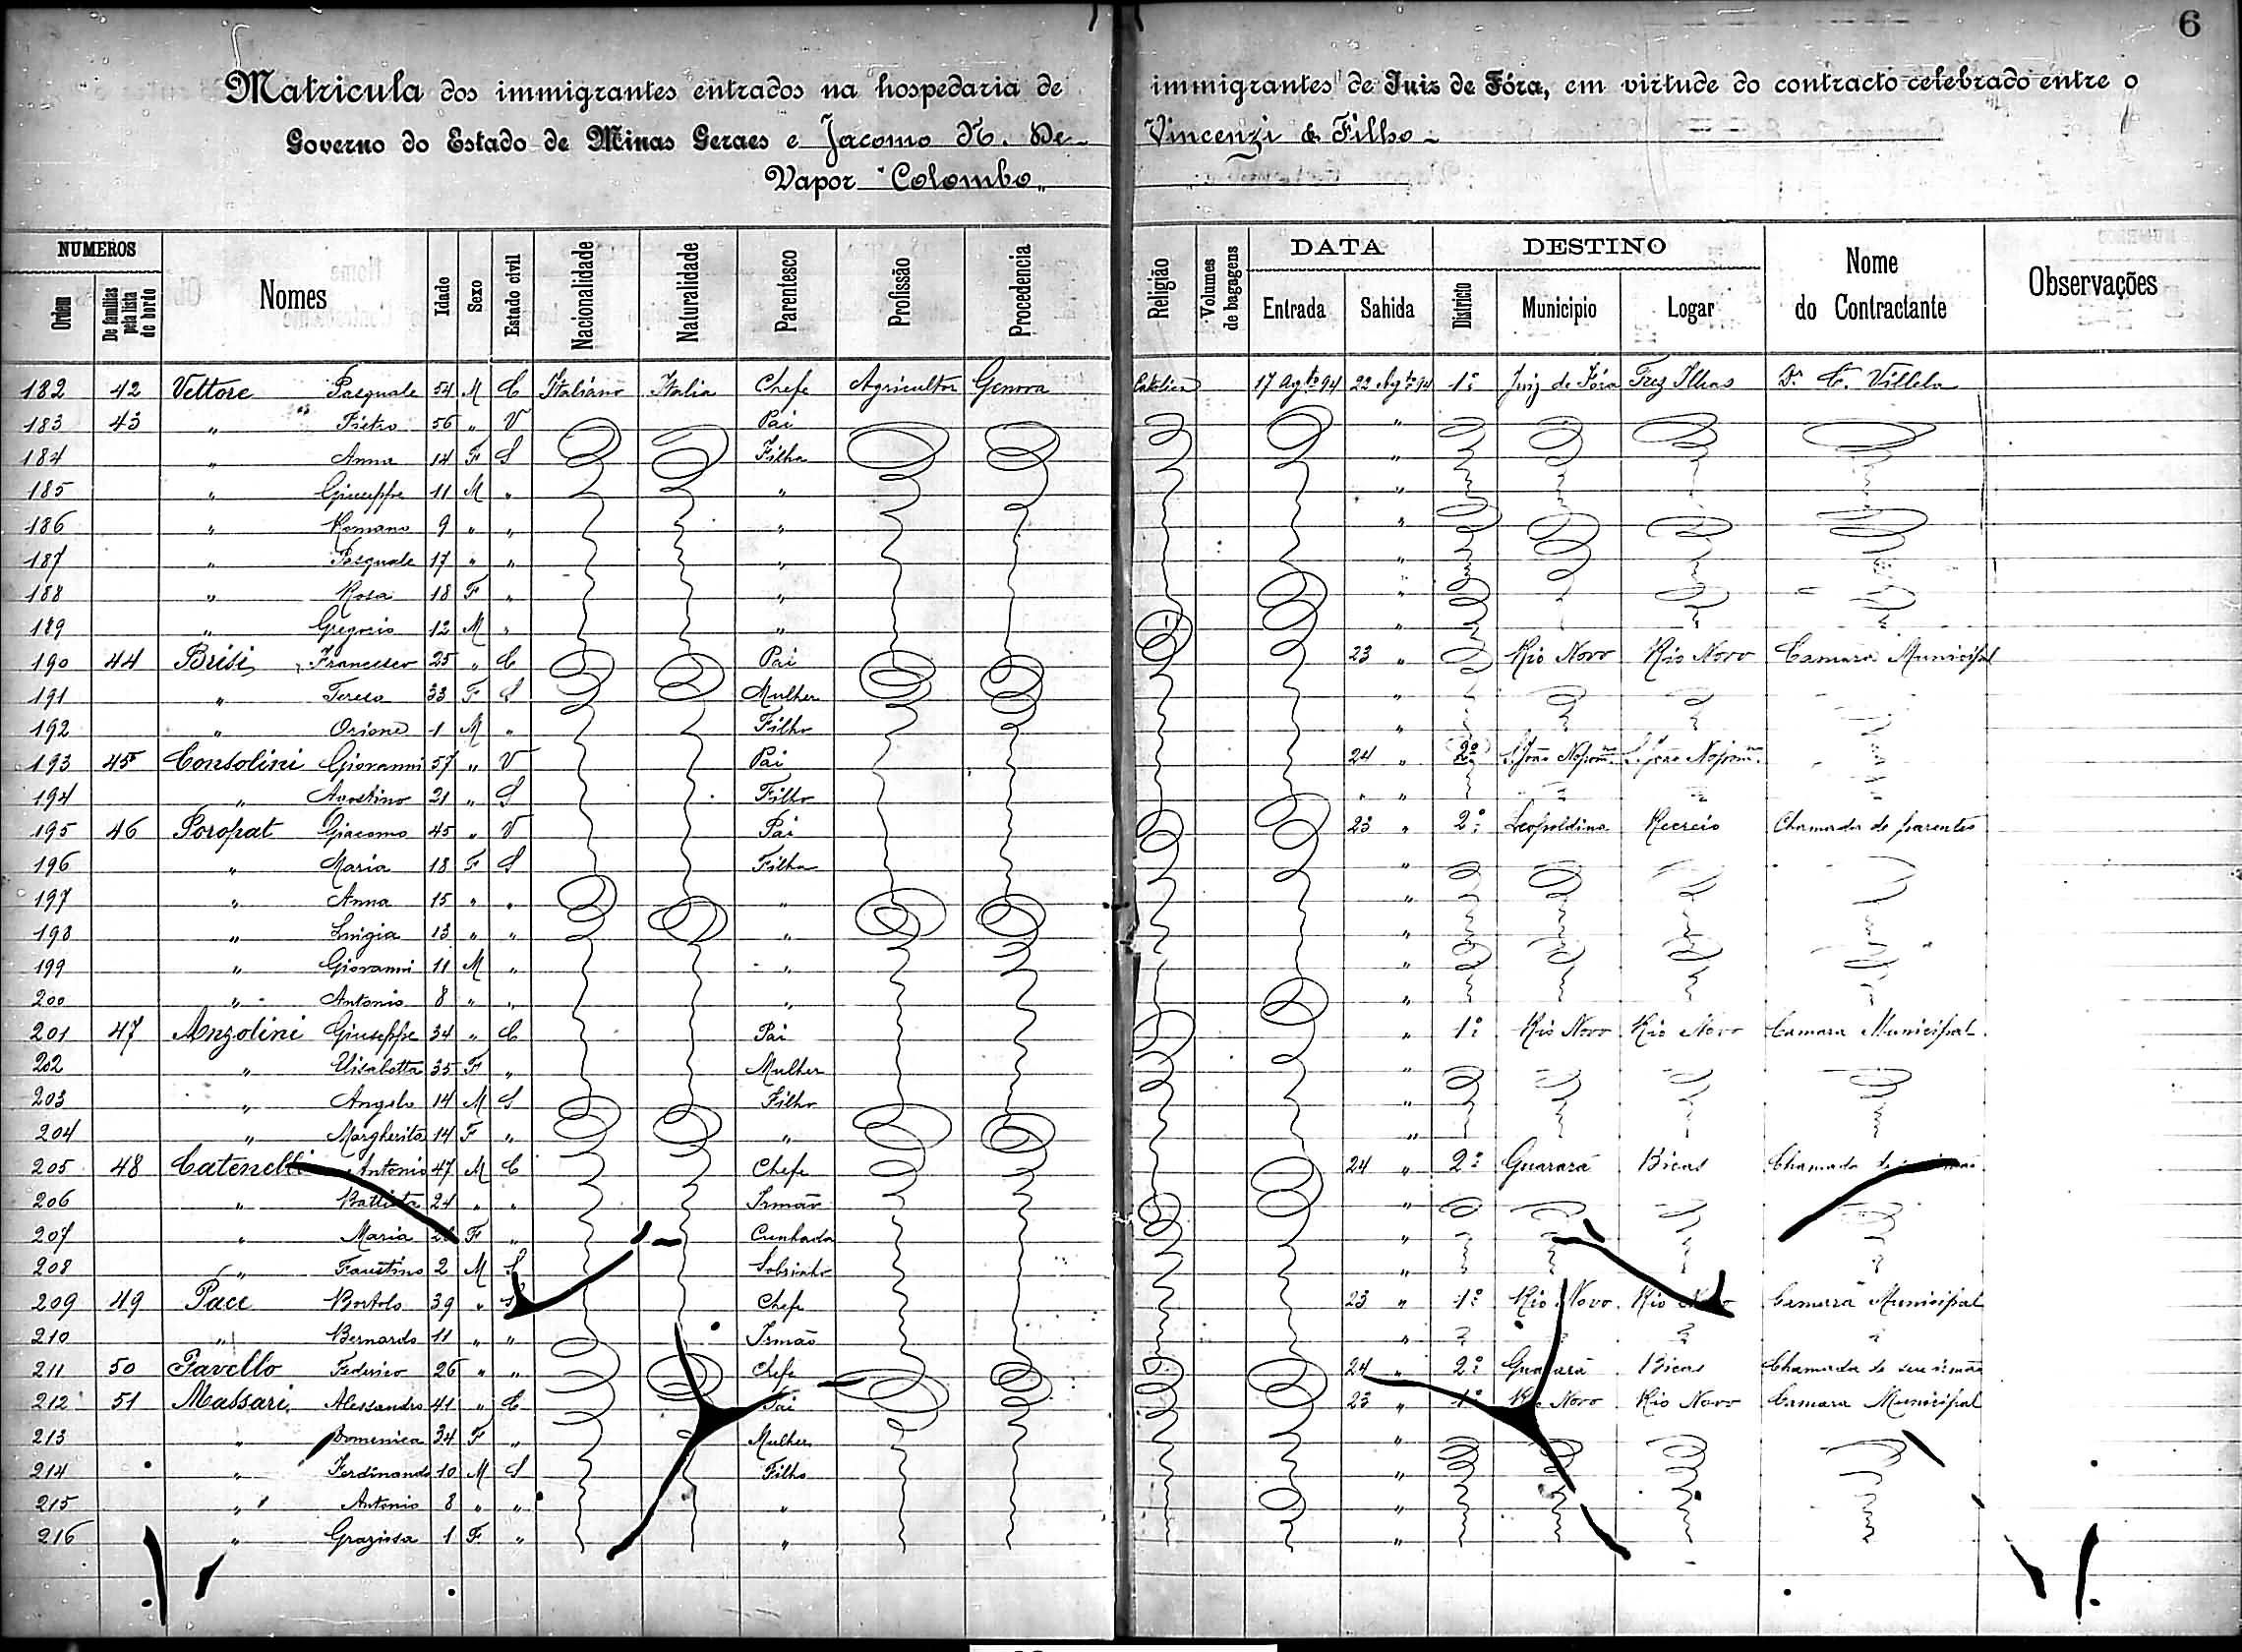 6
Matricula dos immigrantes entrados na hospedaria de immigrantes de Juiz de Fóra, em virtude do contracto celebrado entre o
Governo do Estado de Minas Geraes e Jacomo N. De Vincenzi & Filho
Vapor "Colombo"
NUMEROS DATA DESTINO
Ordem De familias pela lista de bordo Nomes Idade Sexo Estado civil Nacionalidade Naturalidade Parentesco Profissão Procedencia Religião Volumes de bagagens Entrada Sahida Districto Municipio Logar Nome do Contractante Observações
182 42 Vettore Pasquale 54 M C Italiano Italia Chefe Agricultor Genova Catolica 17 Agto 94 22 Agto 94 1º Juiz de Fóra Trez Ilhas Dr. C. Villela
183 43 " Pietro 56 " V Pai "
184 " Anna 14 F S Filha "
185 " Giuseppe 11 M " " "
186 " Romano 9 " " " "
187 " Pasquale 17 " " " "
188 " Rosa 18 F " " "
189 " Gregorio 12 M " " "
190 44 Brisi Francesco 25 " C Pai 23 " Rio Novo Rio Novo Camara Municipal
191 " Teresa 33 F S Mulher "
192 " Orione 1 M " Filho "
193 45 Consolini Giovanni 57 " V Pai 24 " 2º S. João Nepom. S. João Nepom.
194 " Agostino 21 " S Filho " "
195 46 Poropat Giacomo 45 " V Pai 23 " 2º Leopoldina Recreio Chamada de parentes
196 " Maria 18 F S Filha "
197 " Anna 15 " " " "
198 " Luigia 13 " " " "
199 " Giovanni 11 M " " "
200 " Antonio 8 " " " "
201 47 Anzolini Giuseppe 34 " C Pai " 1º Rio Novo Rio Novo Camara Municipal
202 " Elisabetta 35 F " Mulher "
203 " Angelo 14 M S Filho "
204 " Margherita 14 F " " "
205 48 Catenelli Antonio 47 M C Chefe 24 " 2º Guarará Bicas Chamada
206 " Battista 24 " " Irmão "
207 " Maria F " Cunhada "
208 " Faustino 2 M S Sobrinho "
209 49 Pace Bortolo 39 " S Chefe 23 " 1º Rio Novo Rio Novo Camara Municipal
210 " Bernardo 11 " " Irmão "
211 50 Pavello Federico 26 " " Chefe 24 " 2º Guarará Bicas Chamada de seu irmão
212 51 Massari Alessandro 41 " C Pai 23 " 1º Rio Novo Rio Novo Camara Municipal
213 " Domenica 34 F " Mulher "
214 " Ferdinando 10 M S Filho "
215 " Antonio 8 " " " "
216 " Graziosa 1 F " " "